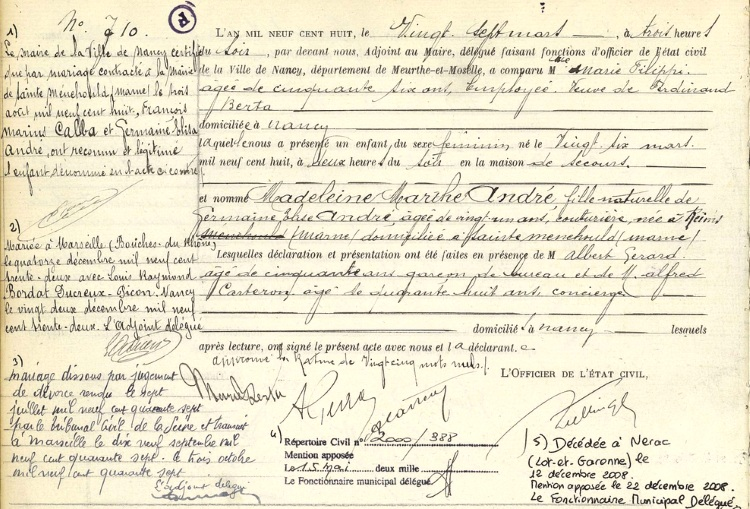 No 710.
F
1)
Le maire de la Ville de Nancy certifie
que par mariage contracté à la mairie
de Sainte Menehould, marne, le trois
août mil neuf cent huit, François
Marius Calba et Germaine Elisa
André, ont reconnu et légitimé
l'enfant dénommé en l'acte ci contre
2)
Mariée à Marseille (Bouches du Rhône)
le quatorze décembre mil neuf cent
trente-deux avec Louis Raymond
Bordat Ducreux-Picon. Nancy
le vingt deux décembre mil neuf
cent trente-deux. L'Adjoint délégué
3)
mariage dissous par jugement
de divorce rendu le sept
juillet mil neuf cent quarante sept
par le tribunal Civil de la Seine et transcrit
à Marseille le dix neuf septembre mil
neuf cent quarante sept. le trois octobre
mil neuf cent quarante sept
L'adjoint délégué
L'AN MIL NEUF CENT HUIT, le Vingt Sept mars, à trois heures
du soir, par devant nous, Adjoint au Maire, délégué faisant fonctions d'officier de l'état civil
de la Ville de Nancy, département de Meurthe-et-Moselle, a comparu Mme Marie Filippi,
agée de cinquante six ans, Employée, Veuve de Ferdinand
Berta
domiciliée à Nancy
laquelle nous a présenté un enfant, du sexe feminin, né le Vingt six mars
mil neuf cent huit, à deux heures du soir en la maison de secours.
et nommé Madeleine Marthe André, fille naturelle de
Germaine Elise André âgée de vingt un ans, couturière, née à Reims
(marne) domiciliée à Sainte menehould (marne)
Lesquelles déclaration et présentation ont été faites en présence de M Albert Gerard
agé de cinquante ans garçon de bureau et de M. Alfred
Carteron, agé de quarante huit ans, concierge
domiciliés à Nancy lesquels
après lecture, ont signé le présent acte avec nous et la déclarante
approuvé la rature de vingt cinq mots nuls.
L'OFFICIER DE L'ÉTAT CIVIL,
4) Répertoire Civil n° 2000/388
Mention apposée
Le 15 mai deux mille
Le Fonctionnaire municipal délégué
5) Décédée à Nerac
(Lot-et-Garonne) le
12 décembre 2008.
Mention apposée le 22 décembre 2008.
Le Fonctionnaire Municipal Délégué